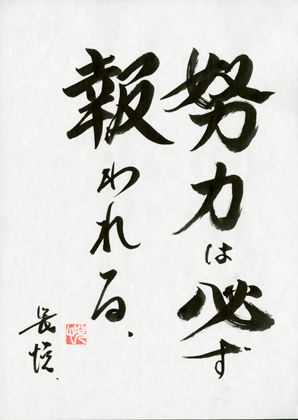 努力は必ず
報われる、
長悦、